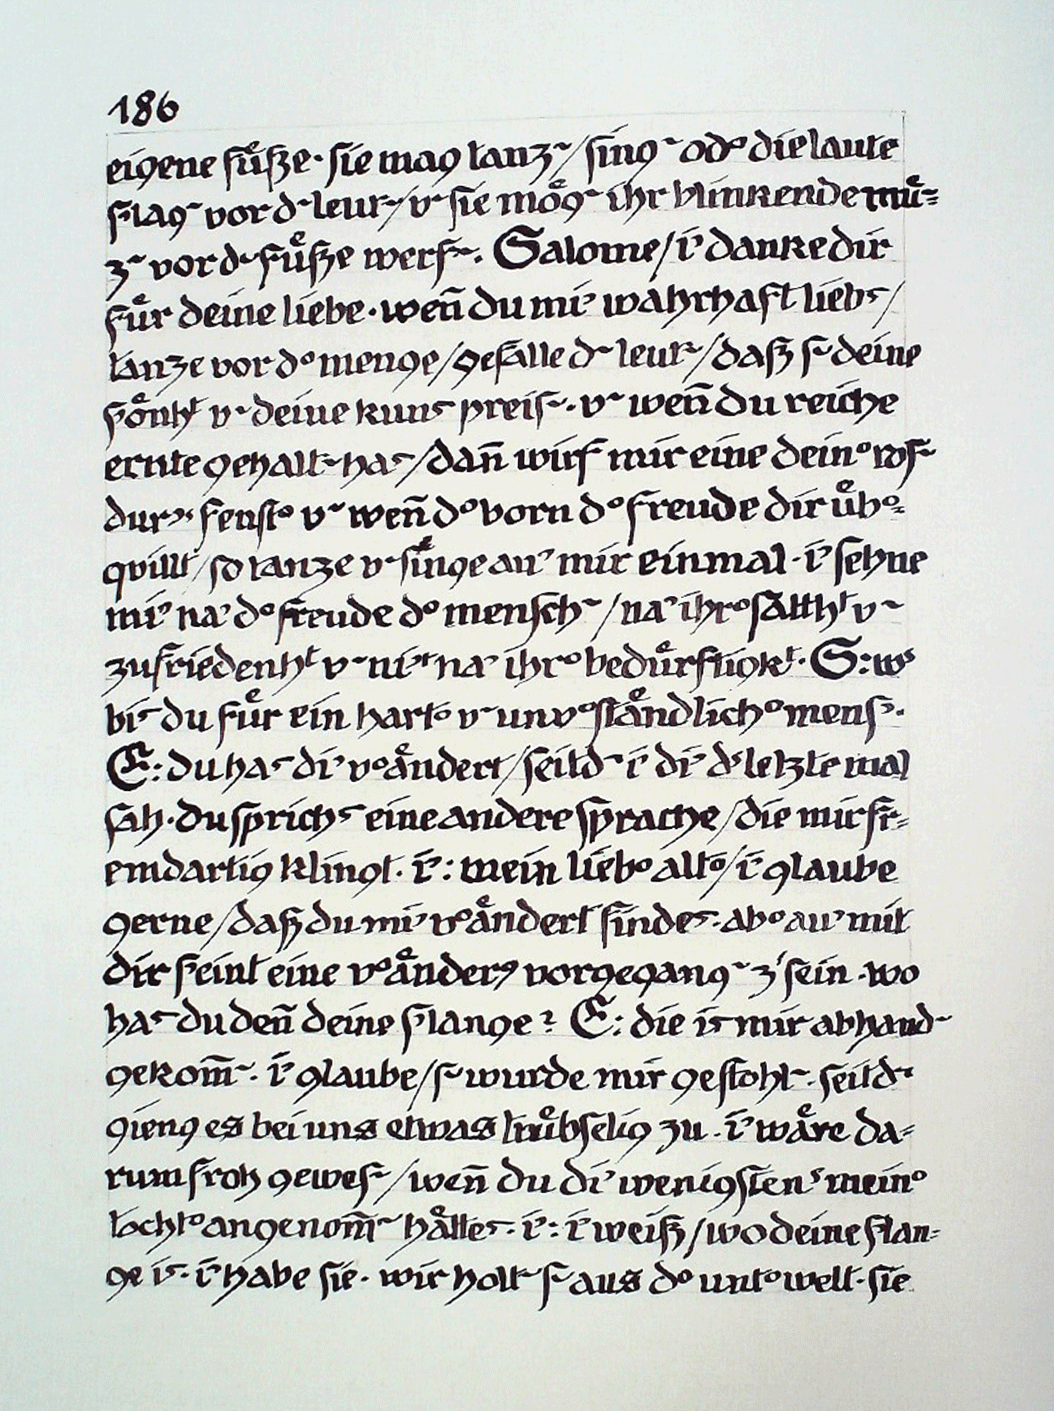 186
eigene füße· sie mag tanz~/ sing~ od° die laute
slag~ vor d~ leut~/ v~ sie mög~ ihr blinkende mü=
z~ vor d~ füße werf~. Salome/ i' danke dir
für deine liebe· weñ du mi' wahrhaft liebs/
tanze vor d° menge/ gefalle d~ leut~/ daß s~ deine
sönht v~ deine kuns preis~· v~ weñ du reiche
ernte gehalt~ has/ dañ wirf mir eine dein° ros~
dur' fenst° v~ weñ d° vorn d° freude dir üb°=
quillt/ so tanze v~ singe au' mir einmal· i' sehne
mi' na' d° freude d° mensch~/ na' ihr° sattht v~
zufriedenht v~ ni't na' ihr° bedürftigkt· S: ws
bis du für ein hart° v~ unv°ständlich° mens·
E: du has di' v°ändert/ seitd~ i' di' ds letzte mal
sah· du sprichs eine andere sprache/ die mir fr=
emdartig klingt· i': mein lieb° alt°/ i' glaube
gerne/ daß du mi' v°ändert findes· ab° au' mit
dir seint eine v°änder' vorgegang~ z' sein· wo
has du deñ deine slange? E: die is mir abhand~
gekom̃~· i' glaube/ s~ wurde mir gestohl~· seitd~
gieng es bei uns etwas trübselig zu· i' wäre da=
rum froh gewes~/ weñ du di' wenigstens mein°
tocht° angenom̃~ hättes· i': i' weiß/ wo deine slan=
ge is· i' habe sie· wir holt~ s~ aus d° unt°welt· sie